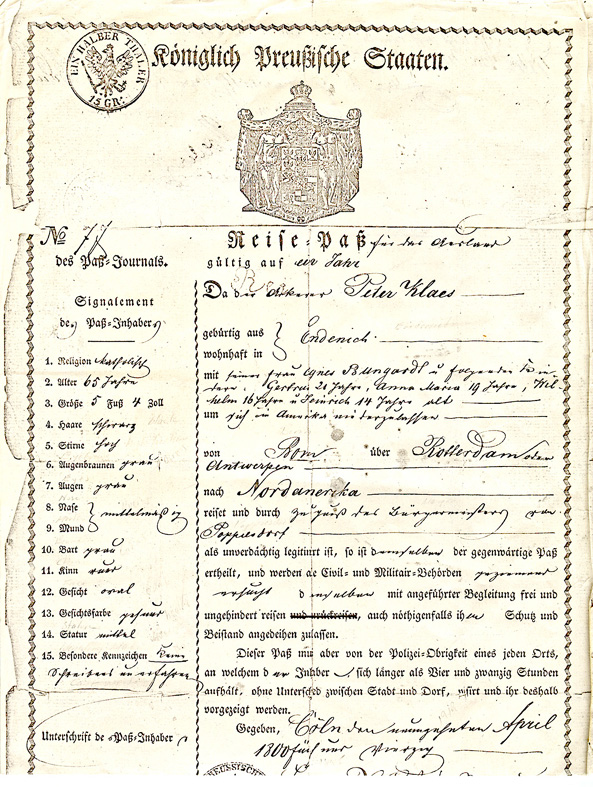 EIN HALBER THALER
15 GR:
Königlich Preußische Staaten.
No 77
des Paß-Journals.
Signalement
des Paß-Inhabers
1. Religion katholisch
2. Alter 65 Jahre
3. Größe 5 Fuß 4 Zoll
4. Haare schwarz
5. Stirne hoch
6. Augenbraunen grau
7. Augen grau
8. Nase
9. Mund
mittelmäßig
10. Bart grau
11. Kinn rund
12. Gesicht oval
13. Gesichtsfarbe gesund
14. Statur mittel
15. Besondere Kennzeichen keine
Schreibens unerfahren
Unterschrift des Paß-Inhabers
Reise-Paß für das Ausland
gültig auf ein Jahr
Da der Ackerer Peter Klaes
gebürtig aus
wohnhaft in
Endenich
mit seiner Frau Agnes Bungardt u folgenden Kin
dern: Gertrud 21 Jahre, Anna Maria 19 Jahre, Wil-
helm 16 Jahre u Heinrich 14 Jahre alt
um sich in Amerika niederzulassen
von Bonn über Rotterdam oder
Antwerpen
nach Nordamerika
reiset und durch Zeugniß des Bürgermeisters von
Poppelsdorf
als unverdächtig legitimirt ist, so ist demselben der gegenwärtige Paß
ertheilt, und werden alle Civil- und Militair-Behörden geziemend
ersucht denselben mit angeführter Begleitung frei und
ungehindert reisen und zurückreisen, auch nöthigenfalls ihm Schutz und
Beistand angedeihen zulassen.
Dieser Paß muß aber von der Polizei-Obrigkeit eines jeden Orts,
an welchem der Inhaber sich länger als Vier und zwanzig Stunden
aufhält, ohne Unterschied zwischen Stadt und Dorf, visirt und ihr deshalb
vorgezeigt werden.
Gegeben, Cöln den neunzehnten April
1800 fünf und Vierzig